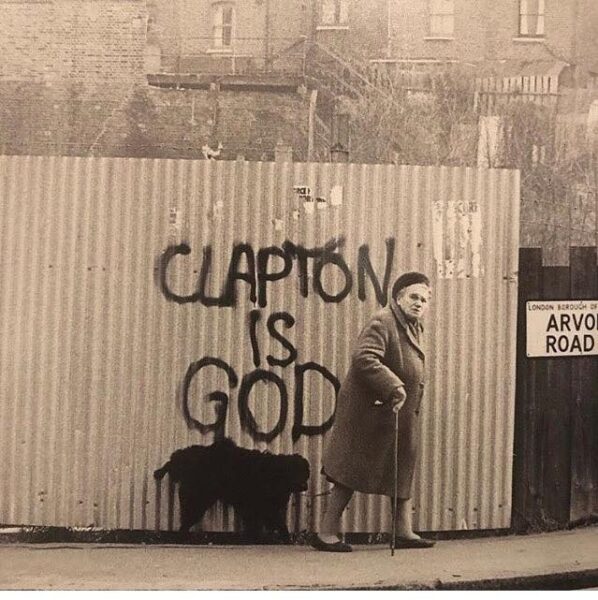 CLAPTON
IS
GOD
LONDON BOROUGH OF
ARVO
ROAD